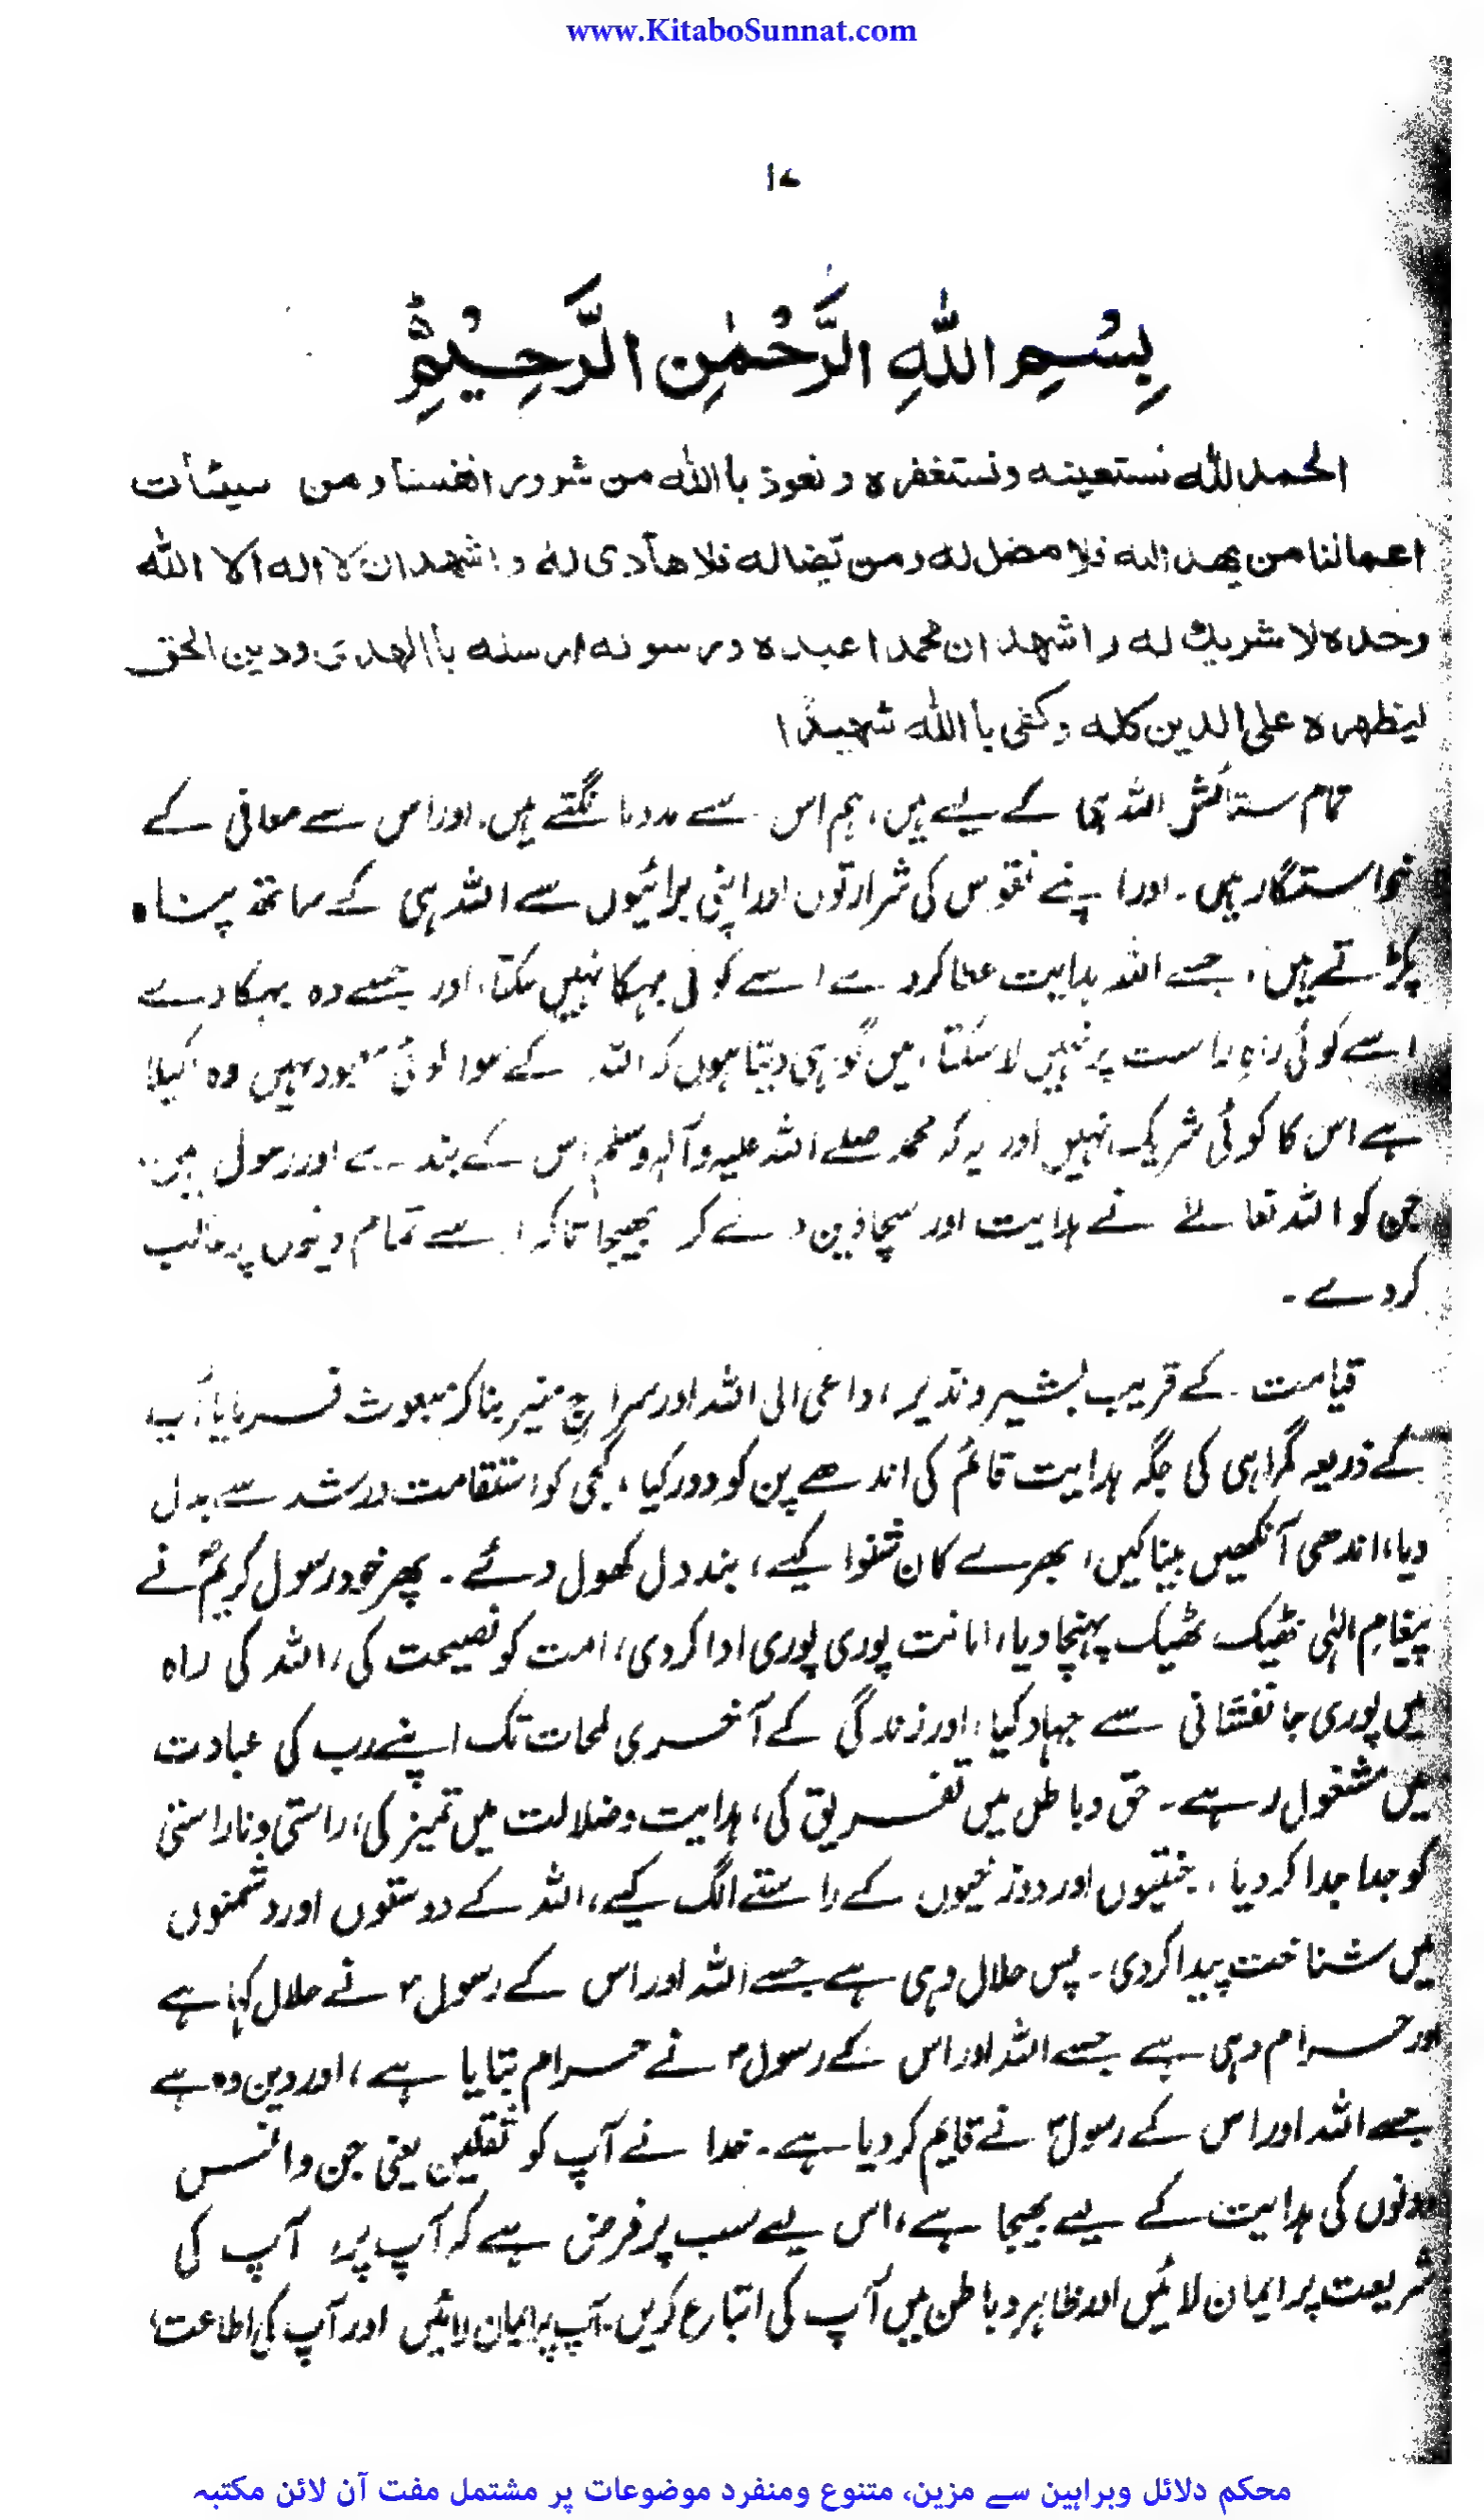 www.KitaboSunnat.com
۱۷
بِسْمِ اللهِ الرَّحْمٰنِ الرَّحِيْمِ
الحمدلله نستعينه ونستغفره ونعوذ باالله من شرور انفسنا ومن سيئات
اعمالنا من يهد الله فلا مضل له ومن يضلله فلا هادى له واشهد ان لا اله الا الله
وحده لا شريك له واشهد ان محمدا عبده ورسوله ارسله باالهدى ودين الحق
ليظهره على الدين كله وكفى باالله شهيدًا
تمام ستائش اللہ ہی کے لیے ہیں، ہم اس سے مدد مانگتے ہیں۔ اور اس سے معافی کے
خواستگار ہیں۔ اور اپنے نفوس کی شرارتوں اور اپنی برائیوں سے اللہ ہی کے ساتھ پناہ
پکڑتے ہیں، جسے اللہ ہدایت عطا کردے اسے کوئی بہکا نہیں سکتا، اور جسے وہ بہکا دے
اسے کوئی راہِ راست پر نہیں لاسکتا، میں گواہی دیتا ہوں کہ اللہ کے سوا کوئی معبود نہیں وہ اکیلا
ہے اس کا کوئی شریک نہیں اور یہ کہ محمد صلے اللہ علیہ وآلہ وسلم اس کے بندے اور رسول ہیں۔
جن کو اللہ تعالےٰ نے ہدایت اور سچا دین دے کر بھیجا تاکہ اسے تمام دینوں پر غالب
کردے۔
قیامت کے قریب بشیر و نذیر، داعی الی اللہ اور سراجِ منیر بنا کر مبعوث فرمایا۔ آپ
کے ذریعہ گمراہی کی جگہ ہدایت قائم کی اندھے پن کو دور کیا، کجی کو استقامت و رشد سے بدل
دیا، اندھی آنکھیں بینا کیں، بہرے کان شنوا کیے، بند دل کھول دئے۔ پھر خود رسول کریمؐ نے
پیغامِ الٰہی ٹھیک ٹھیک پہنچا دیا، امانت پوری پوری ادا کردی، امت کو نصیحت کی، اللہ کی راہ
میں پوری جانفشانی سے جہاد کیا، اور زندگی کے آخری لمحات تک اپنے رب کی عبادت
میں مشغول رہے۔ حق و باطل میں تفریق کی، ہدایت و ضلالت میں تمیز کی، راستی و ناراستی
کو جدا جدا کردیا، جنتیوں اور دوزخیوں کے راستے الگ کیے، اللہ کے دوستوں اور دشمنوں
میں شناخت پیدا کردی۔ پس حلال وہی ہے جسے اللہ اور اس کے رسولؐ نے حلال کہا ہے
اور حرام وہی ہے جسے اللہ اور اس کے رسولؐ نے حرام بتایا ہے، اور دین وہ ہے
جسے اللہ اور اس کے رسولؐ نے قایم کردیا ہے۔ خدا نے آپ کو ثقلین یعنی جن وانس
دونوں کی ہدایت کے لیے بھیجا ہے، اس لیے سب پر فرض ہے کہ آپ پر، آپ کی
شریعت پر ایمان لائیں اور ظاہر و باطن میں آپ کی اتباع کریں۔ آپ پر ایمان لائیں اور آپ کی اطاعت،
محکم دلائل وبراہین سے مزین، متنوع ومنفرد موضوعات پر مشتمل مفت آن لائن مکتبہ